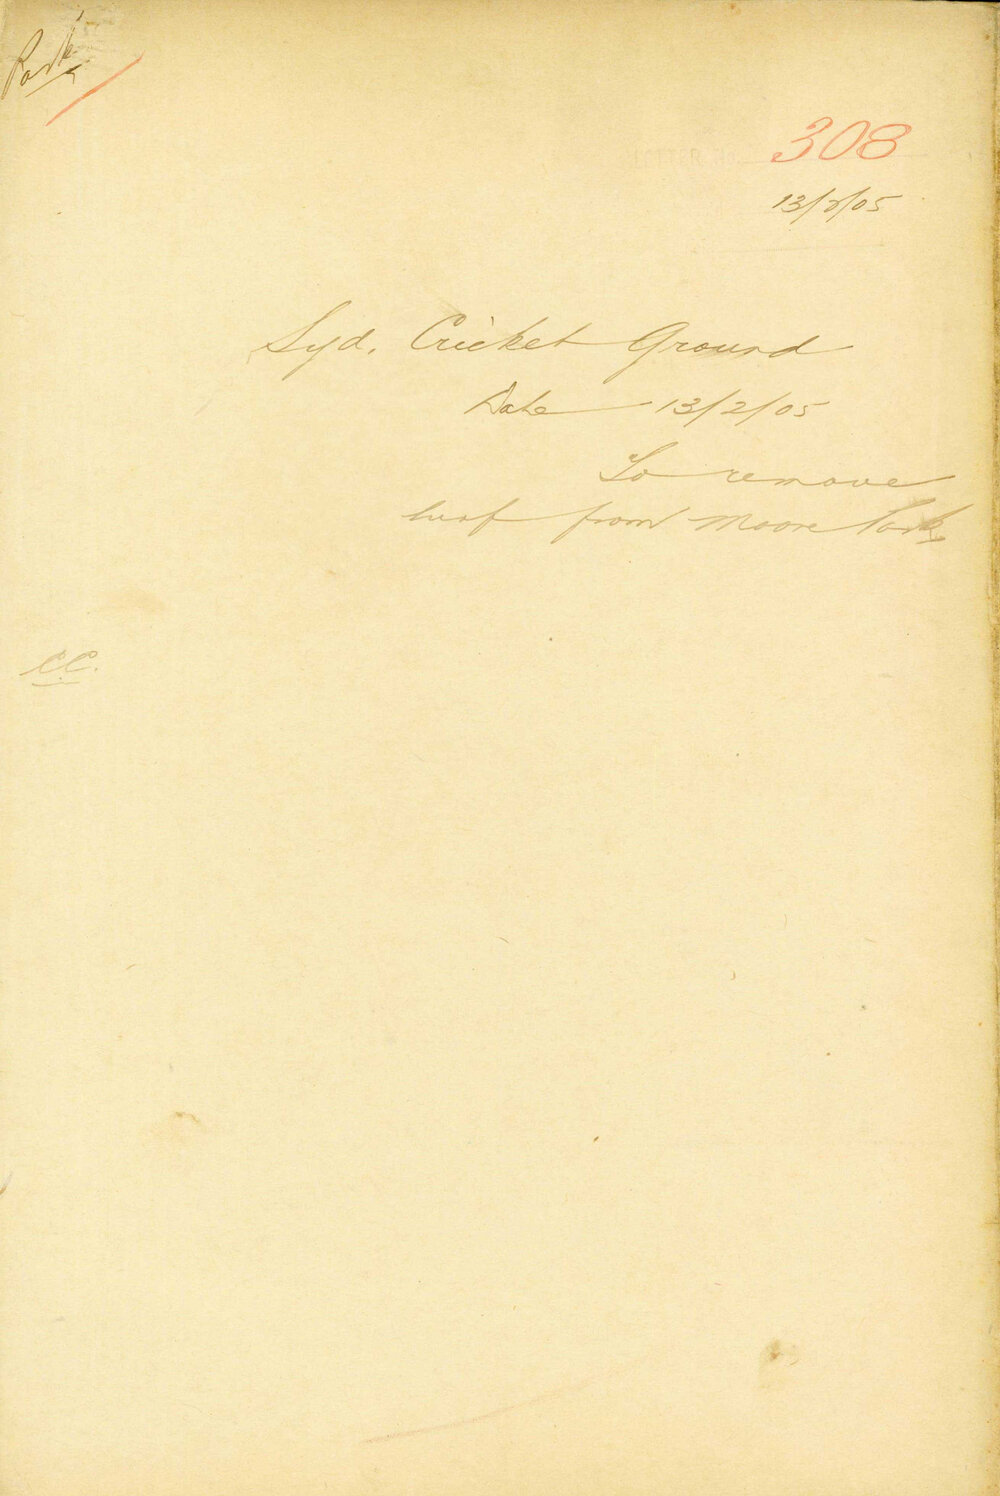 Park
308
13/2/05
Syd. Cricket Ground
Date 13/2/05
To remove
turf from Moore Park
CC.